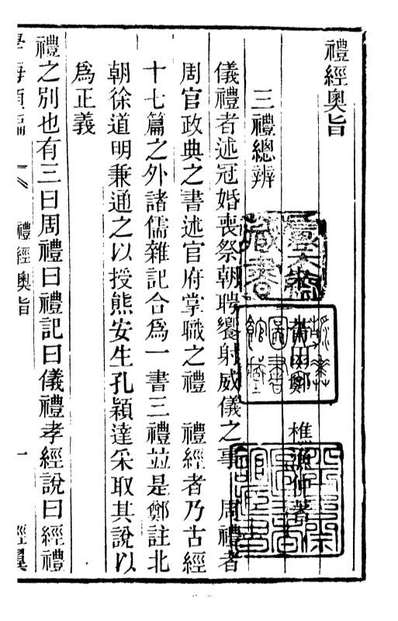 禮經奧旨
莆田鄭 樵漁仲著
三禮總辨
儀禮者述冠婚喪祭朝聘饗射威儀之事 周禮者
周官政典之書述官府掌職之禮 禮經者乃古經
十七篇之外諸儒雜記合爲一書三禮並是鄭註北
朝徐道明兼通之以授熊安生孔穎達采取其說以
爲正義
禮之別也有三曰周禮曰禮記曰儀禮孝經說曰經禮
學海類編 禮經奧旨 一 經翼